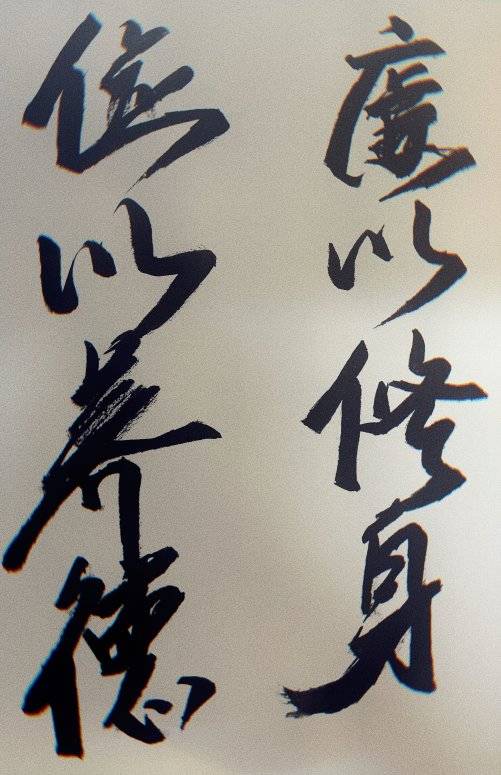 廉以修身
俭以养德